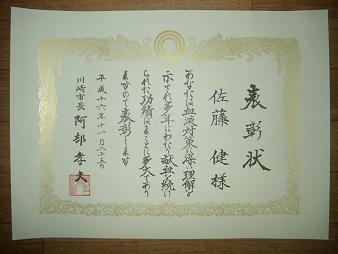 表彰状
佐藤健様
あなたは血液対策に深い理解を
示され多年にわたり献血を続け
られた功績はまことに多大であり
ますので表彰します
平成十六年十一月二十五日
川崎市長 阿部孝夫